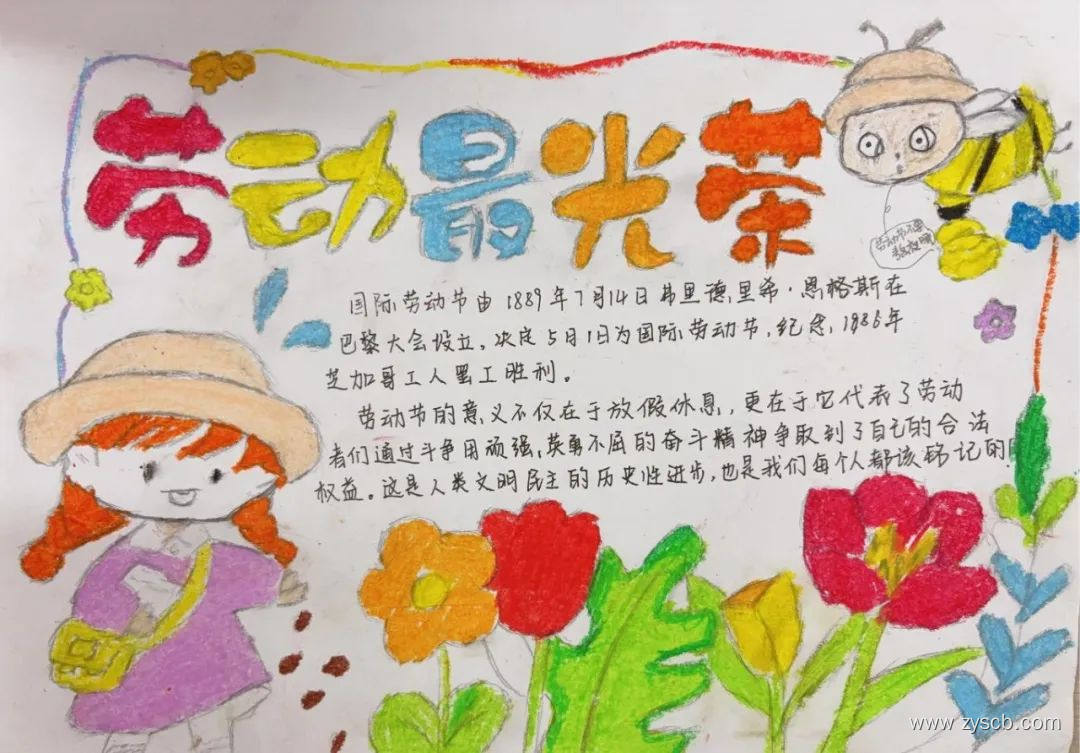 劳动最光荣
劳动节不要
教假哦
国际劳动节由1889年7月14日弗里德里希·恩格斯在
巴黎大会设立,决定5月1日为国际劳动节,纪念,1886年
芝加哥工人罢工胜利。
劳动节的意义不仅在于放假休息,更在于它代表了劳动
者们通过斗争用顽强,英勇不屈的奋斗精神争取到了自己的合法
权益。这是人类文明民主的历史性进步,也是我们每个人都该铭记的!
www.zyscb.com